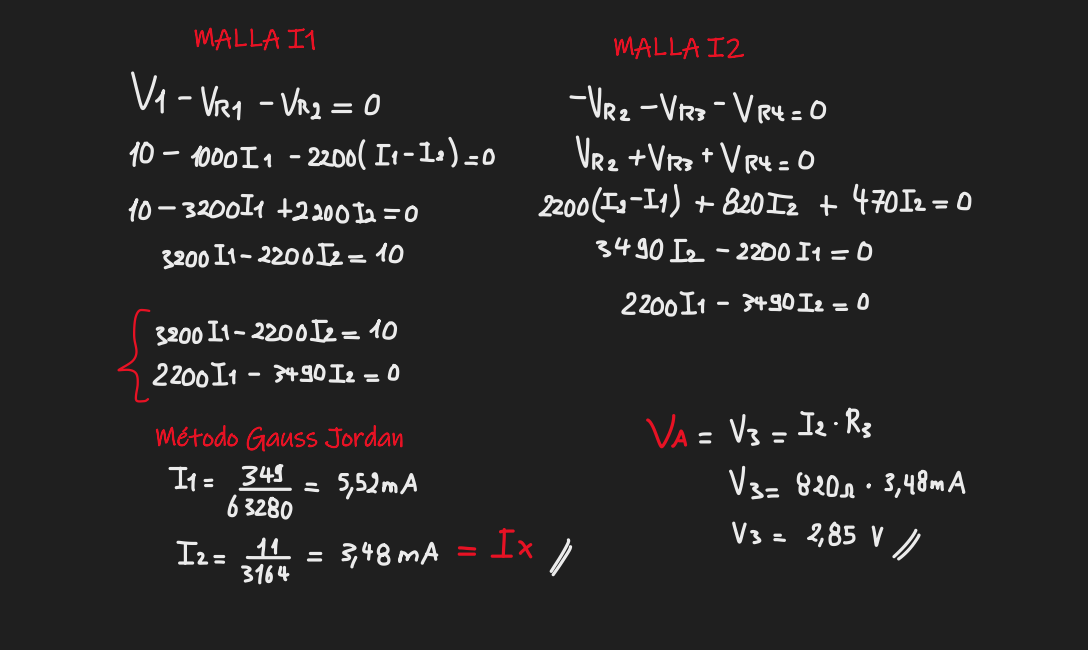 MALLA I1
V1 - VR1 - VR2 = 0
10 - 1000I1 - 2200(I1 - I2) = 0
10 - 3200I1 + 2200I2 = 0
3200I1 - 2200I2 = 10
3200I1 - 2200I2 = 10
2200I1 - 3490I2 = 0
Método Gauss Jordan
I1 = 349/63280 = 5,52mA
I2 = 11/3164 = 3,48mA = Ix //
MALLA I2
-VR2 - VR3 - VR4 = 0
VR2 + VR3 + VR4 = 0
2200(I2 - I1) + 820I2 + 470I2 = 0
3490I2 - 2200I1 = 0
2200I1 - 3490I2 = 0
VA = V3 = I2 · R3
V3 = 820Ω · 3,48mA
V3 = 2,85 V //